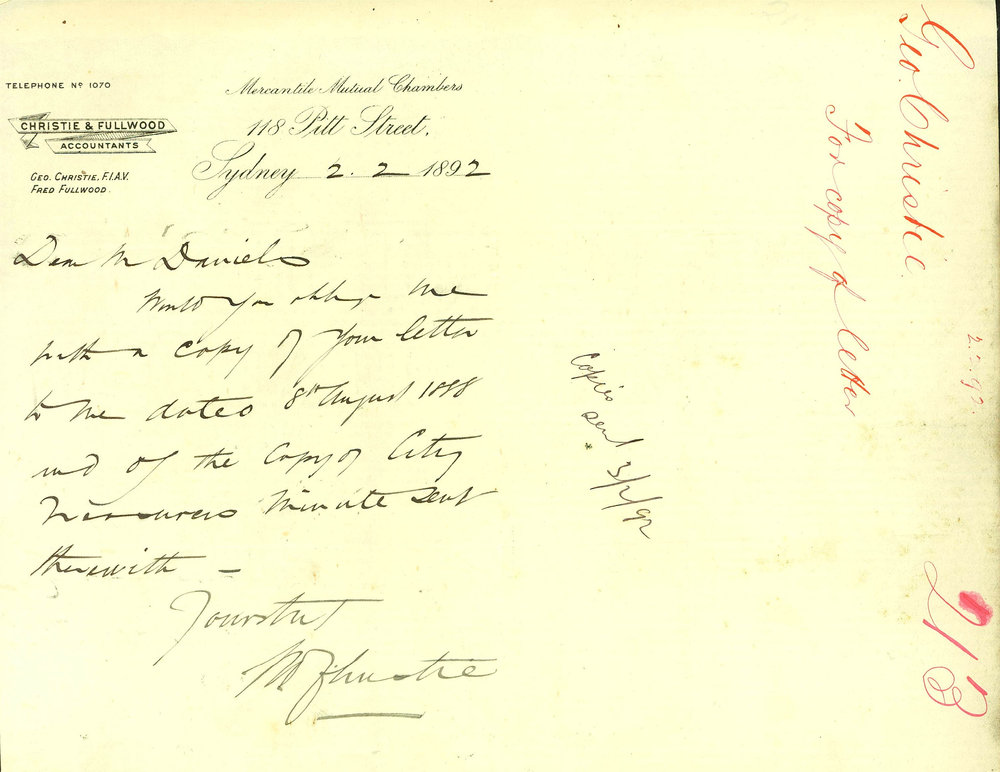 TELEPHONE Nº 1070
CHRISTIE & FULLWOOD
ACCOUNTANTS
GEO. CHRISTIE, F.I.A.V.
FRED FULLWOOD.
Mercantile Mutual Chambers
118 Pitt Street,
Sydney 2. 2 1892
Dear Mr Daniels
Would you oblige me
with a copy of your letter
to me dated 8th August 1888
and of the copy of City
Treasurers Minute sent
therewith –
Yours
Christie
Copies sent 3/2/92
Geo. Christie.
For copy of letter
2.2.92.
213